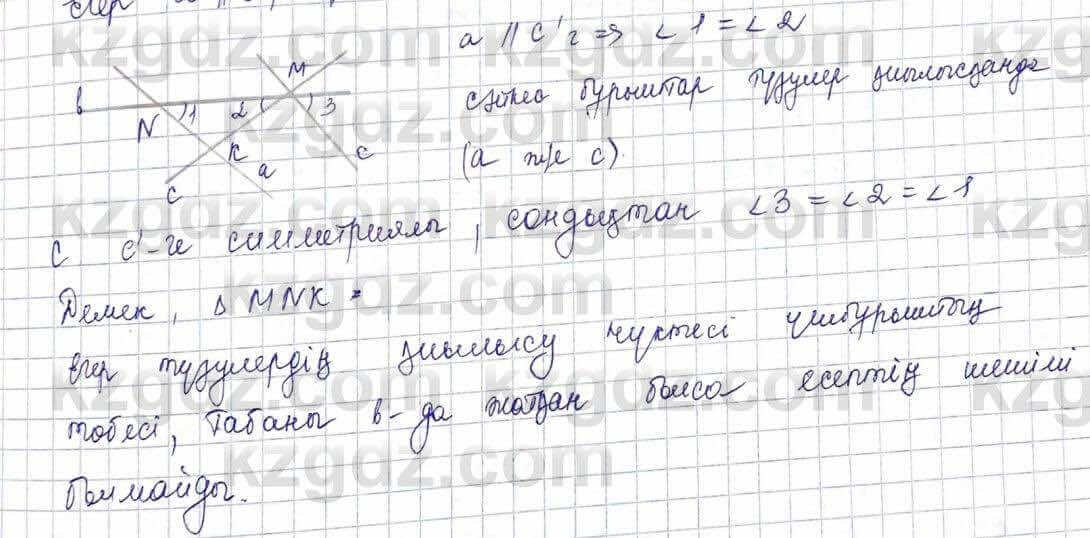 a || c' => ∠1 = ∠2
сәйкес бұрыштар түзулер қиылысқанда
(a ж/е c).
b
N
1
2
M
3
K
a
c
c
c c'-ге симметриялы, сондықтан ∠3 = ∠2 = ∠1
Демек, Δ MNK =
егер түзулердің қиылысу нүктесі үшбұрыштың
төбесі, табаны b-да жатқан болса есептің шешімі
болмайды.
kzgdz.com